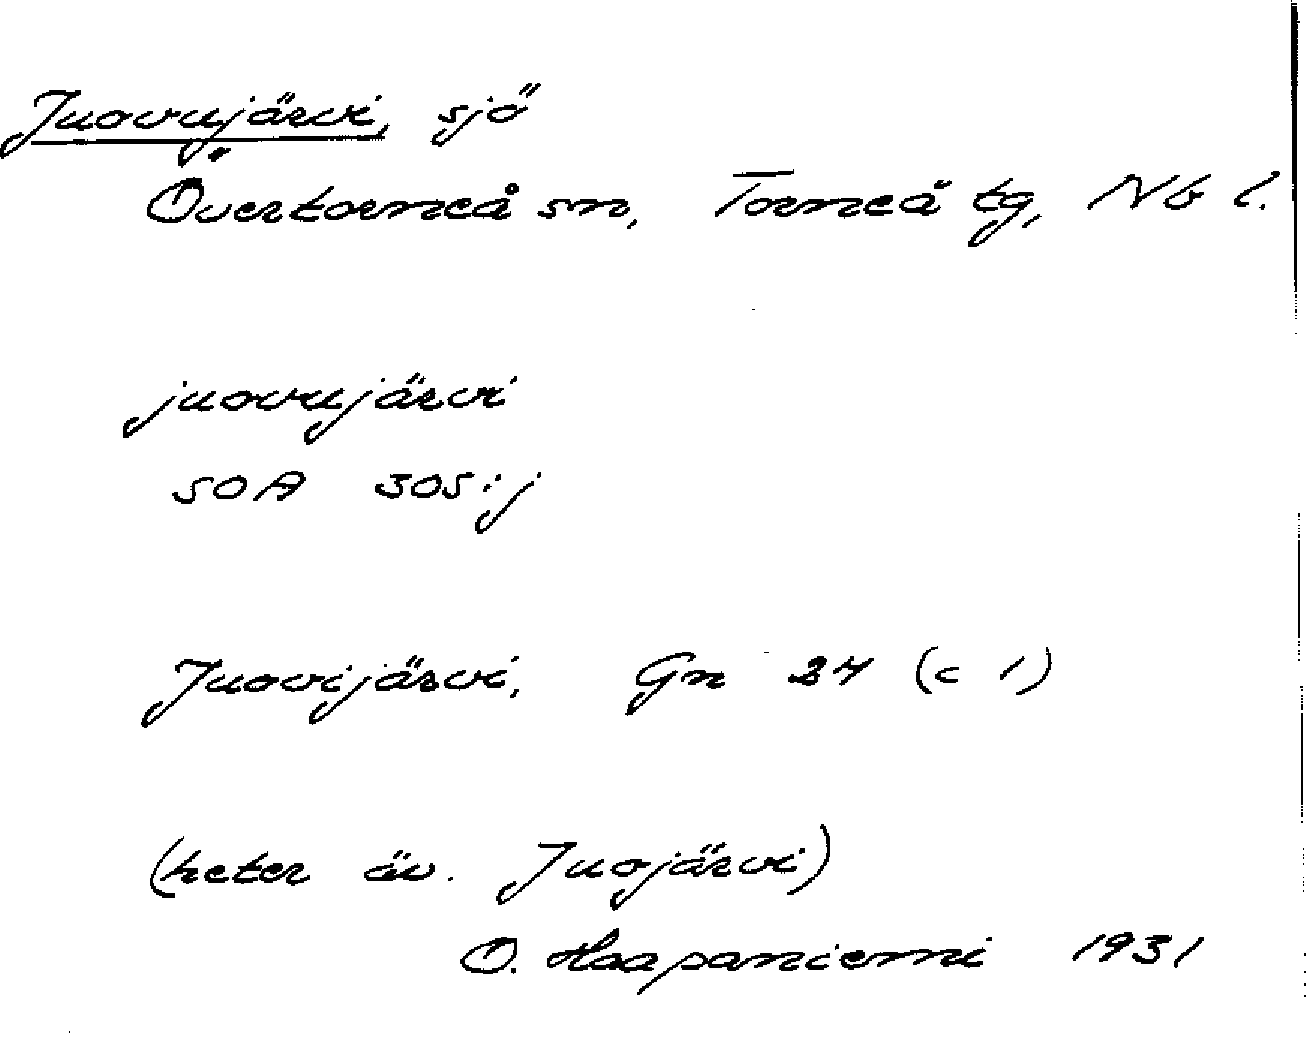 Juovujärvi, sjö
Övertorneå sn, Torneå tg, Nb l.
juovujärvi
SOA 305:j
Juovijärvi, Gn 34 (c 1)
(heter äv. Juojärvi)
O. Haapaniemi 1931